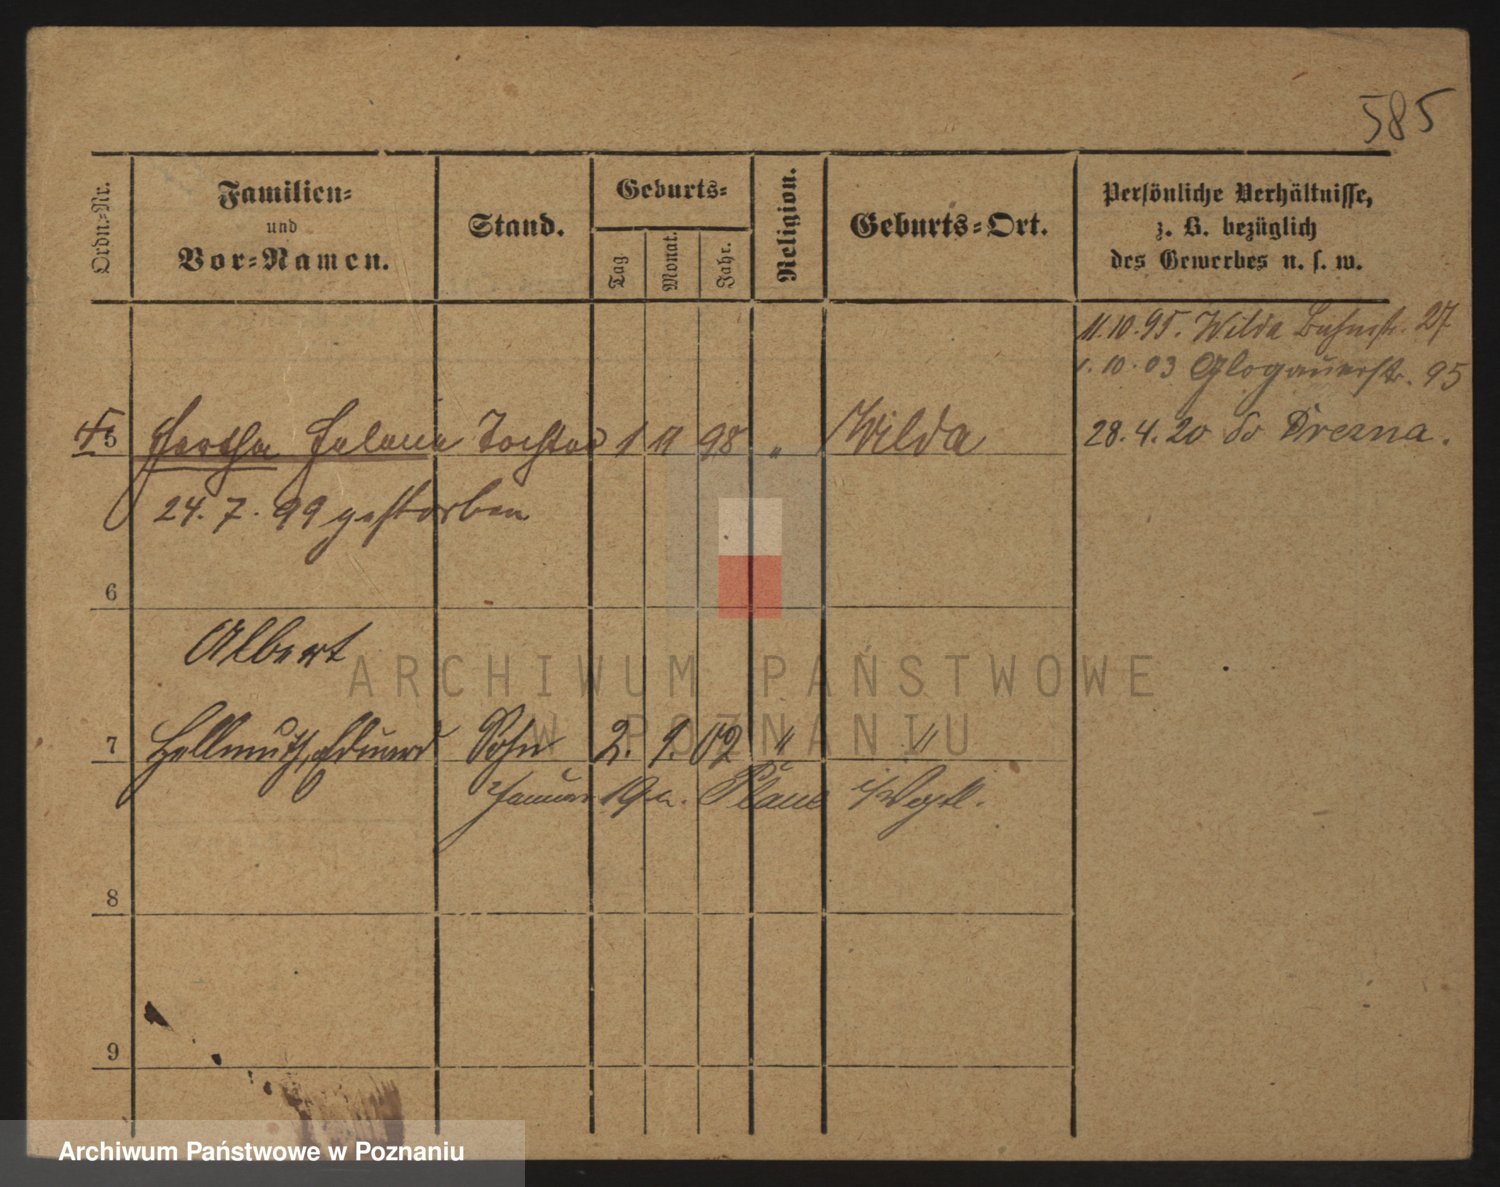 585
Ordn.-Nr.
Familien-
und
Vor-Namen.
Stand.
Geburts-
Tag
Monat.
Jahr.
Religion.
Geburts-Ort.
Persönliche Verhältnisse,
z. B. bezüglich
des Gewerbes u. s. w.
11.10.95. Wilda 27
1.10.03 Glogauerstr. 95
28.4.20 Drezna.
5 Hertha Helene Tochter 1 11 98 " Wilda
24.7.99 gestorben
6
Albert
7 Hellmuth, Eduard Sohn 2. 9. 02 " "
Januar Plauen i/Vogtl.
8
9
ARCHIWUM PAŃSTWOWE
W POZNANIU
Archiwum Państwowe w Poznaniu